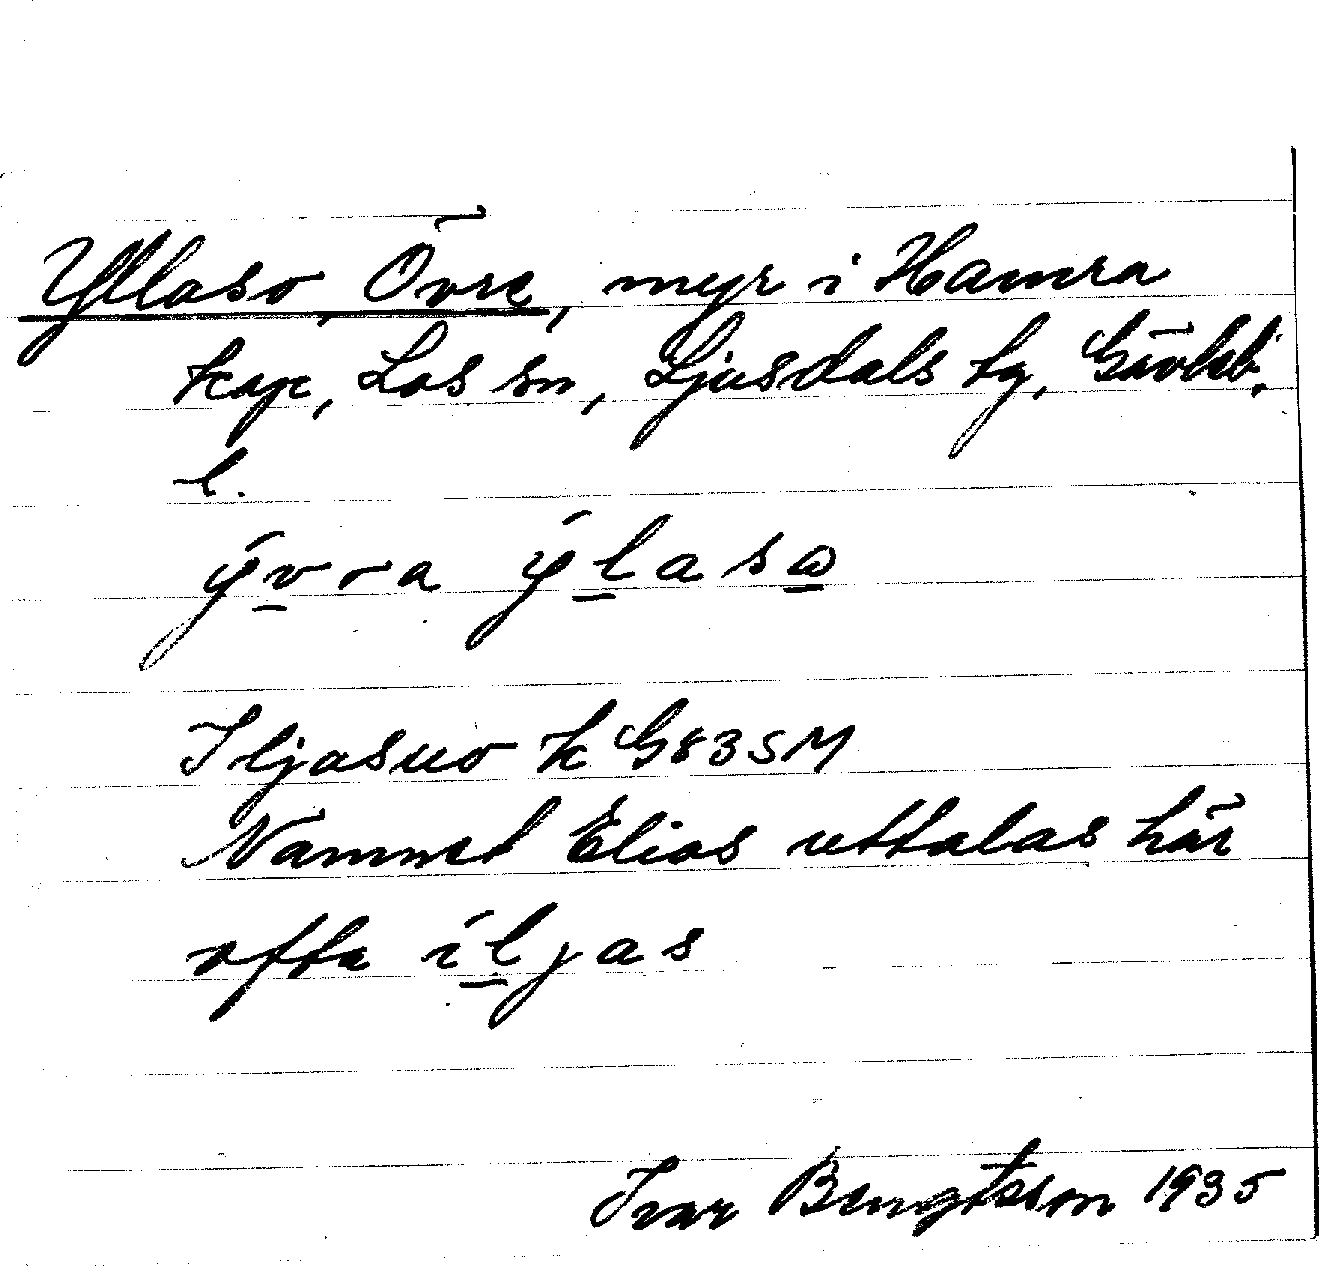 Yllaso, Övre, myr i Hamra
kap, Los sn, Ljusdals tg, Gävleb.
l.
ývra ýlasω
Iljasuo k G83SM
Namnet Elias uttalas här
ofta íljas
Ivar Bengtsson 1935